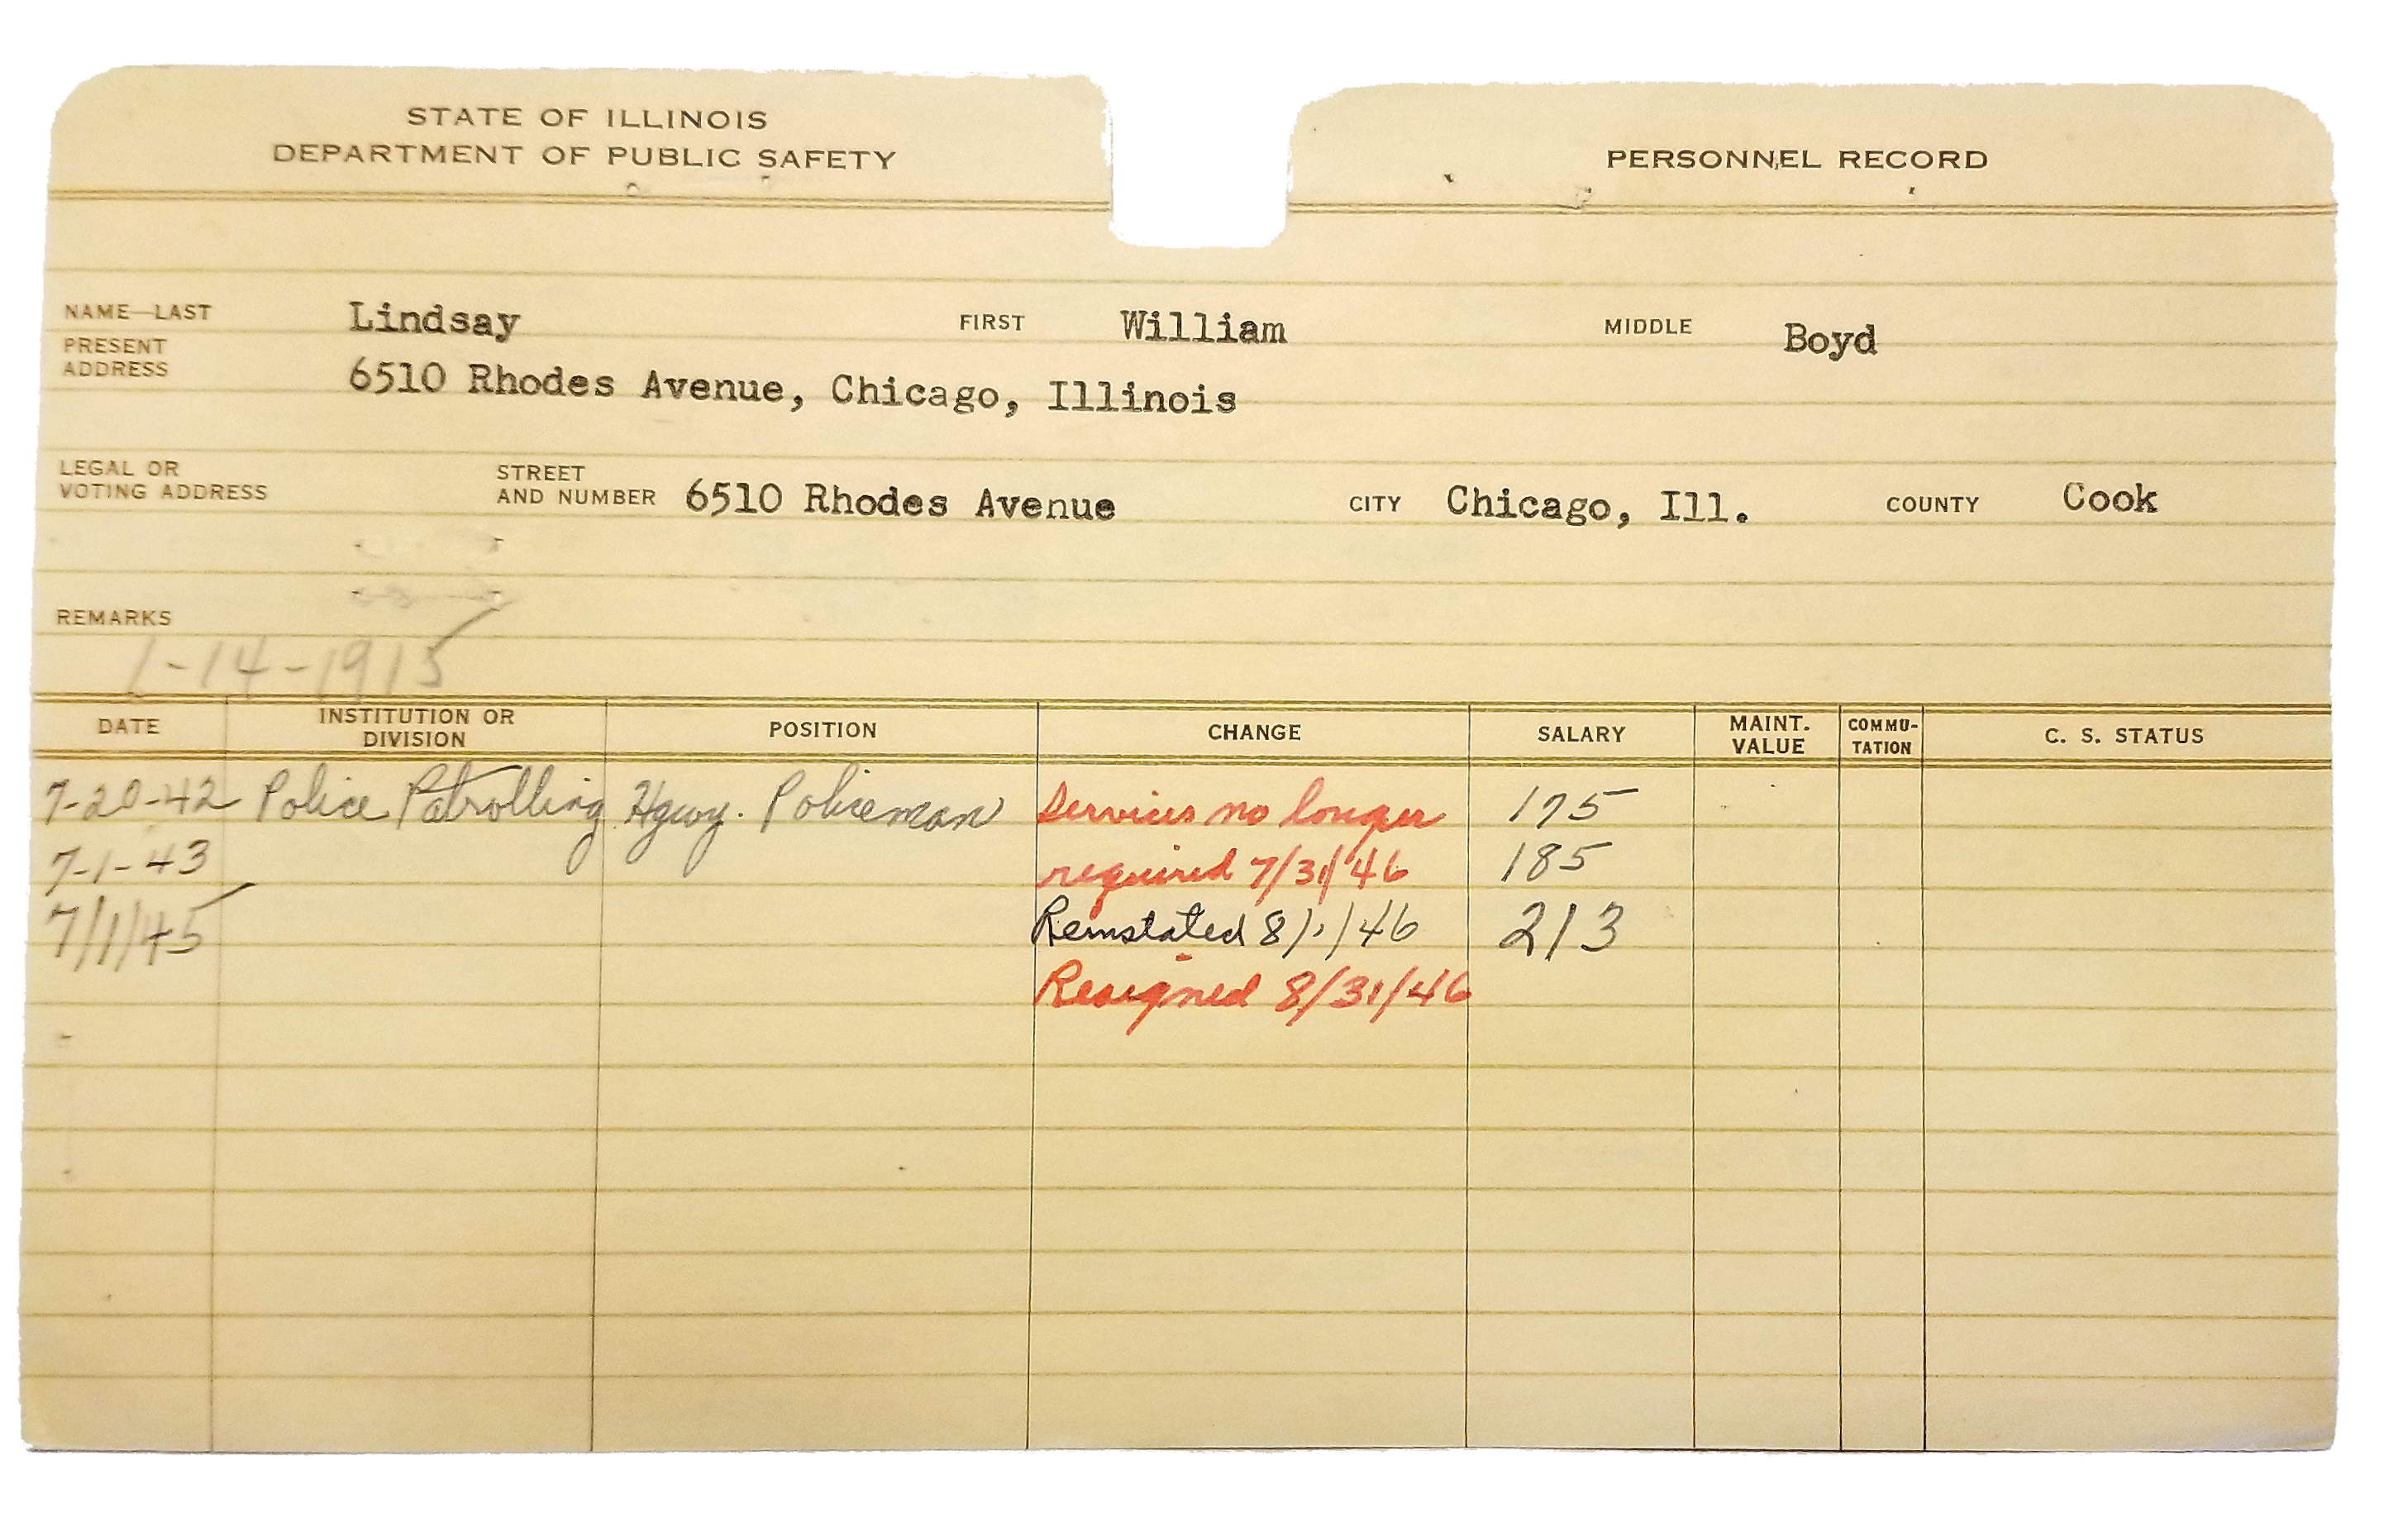 STATE OF ILLINOIS
DEPARTMENT OF PUBLIC SAFETY
PERSONNEL RECORD
NAME—LAST Lindsay FIRST William MIDDLE Boyd
PRESENT
ADDRESS 6510 Rhodes Avenue, Chicago, Illinois
LEGAL OR
VOTING ADDRESS STREET
AND NUMBER 6510 Rhodes Avenue CITY Chicago, Ill. COUNTY Cook
REMARKS
1-14-1915
DATE INSTITUTION OR
DIVISION POSITION CHANGE SALARY MAINT.
VALUE COMMU-
TATION C. S. STATUS
7-20-42 Police Patrolling Hgwy. Policeman Services no longer 175
7-1-43 required 7/31/46 185
7/1/45 Reinstated 8/1/46 213
Resigned 8/31/46